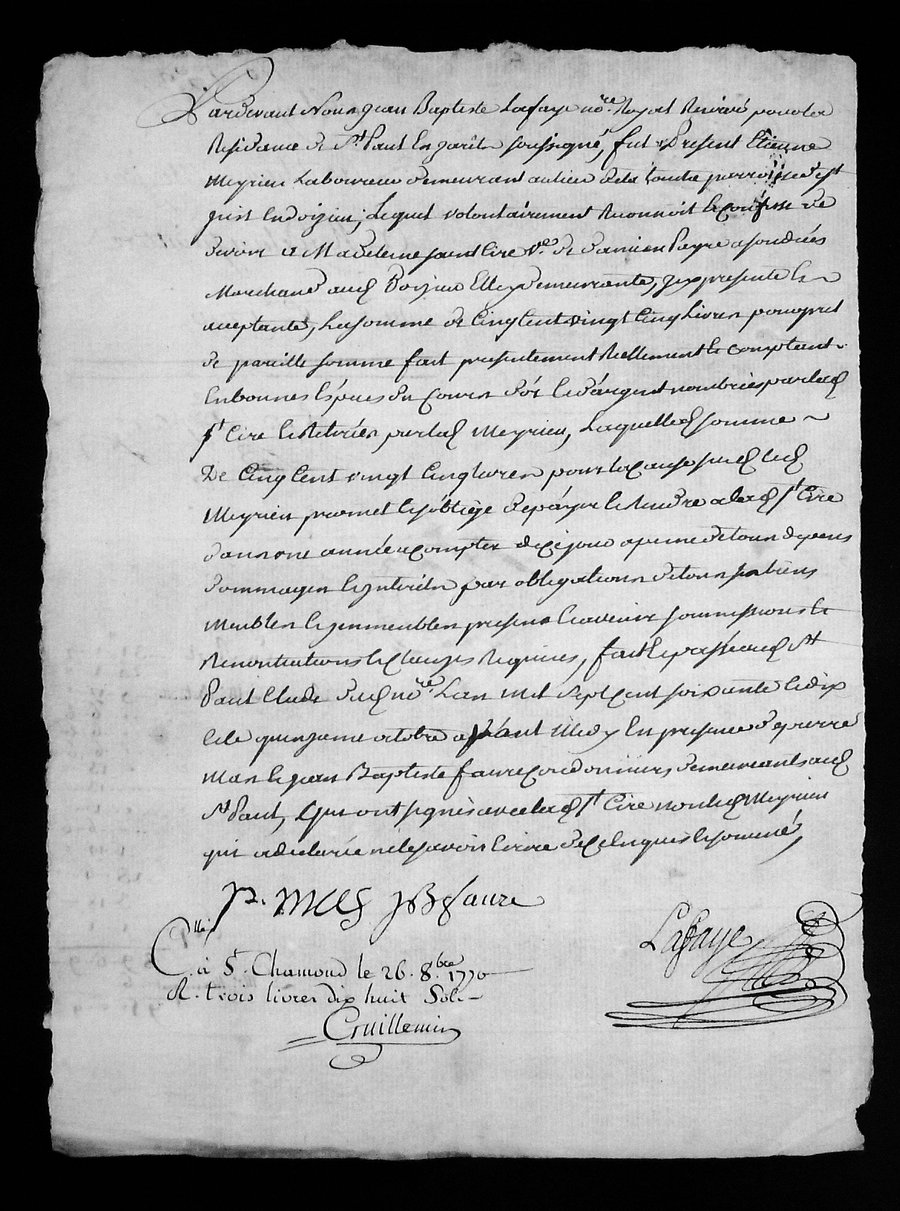 Pardevant Nous jean Baptiste Lafaye no.re Royal Reservé pour la
Residance de St. Paul En jarêts soussigné, fut Present Etienne
Meyrieu Laboureur demeurant au lieu de la perroisse de st
just En doizieu, Lequel volontairement Reconnoit & Confesse
devoir a Madeleine saint Cire ve. de damien Peyre
Marchand aud Doizieu Elle y demeurante, jcy presente & ~
aceptante, La somme de Cinq Cent vingt Cinq Livres pour pret
de pareille somme fait presentement Reellement & comptant
En bonnes Espèces du Cours d'or & d'argent nombrées par lad
st Cire & Retirées par led Meyrieu, Laquelle d somme ~
De Cinq Cent vingt Cinq Livres pour la Cause sus d led
Meyrieu promet & s'oblige de payer & Rendre a lad st Cire
dans une année a compter de Ce jour a peine de tous depens
dommages & jnterêts par obligations de tous ses biens
Meubles & jmmeubles presens & avenir soumissions &
Renontiations & Clauses Requises, fait & passé aud st
Paul Etude dud no.re Lan mil sept Cent soixante & dix
& le quinzieme octobre avant Midy En presence de pierre
Mas & jean Baptiste faure Cordonniers demeurants aud
st Paul, Qui ont signés avec lad st Cire non led Meyrieu
qui a declarée ne sçavoir Ecrire de Ce Enquis & sommé,
P. MAS JB faure
Lafaye
C.lle à St. Chamond le 26. 8.bre 1770
R. trois livres dix huit Sols
Cruillemin